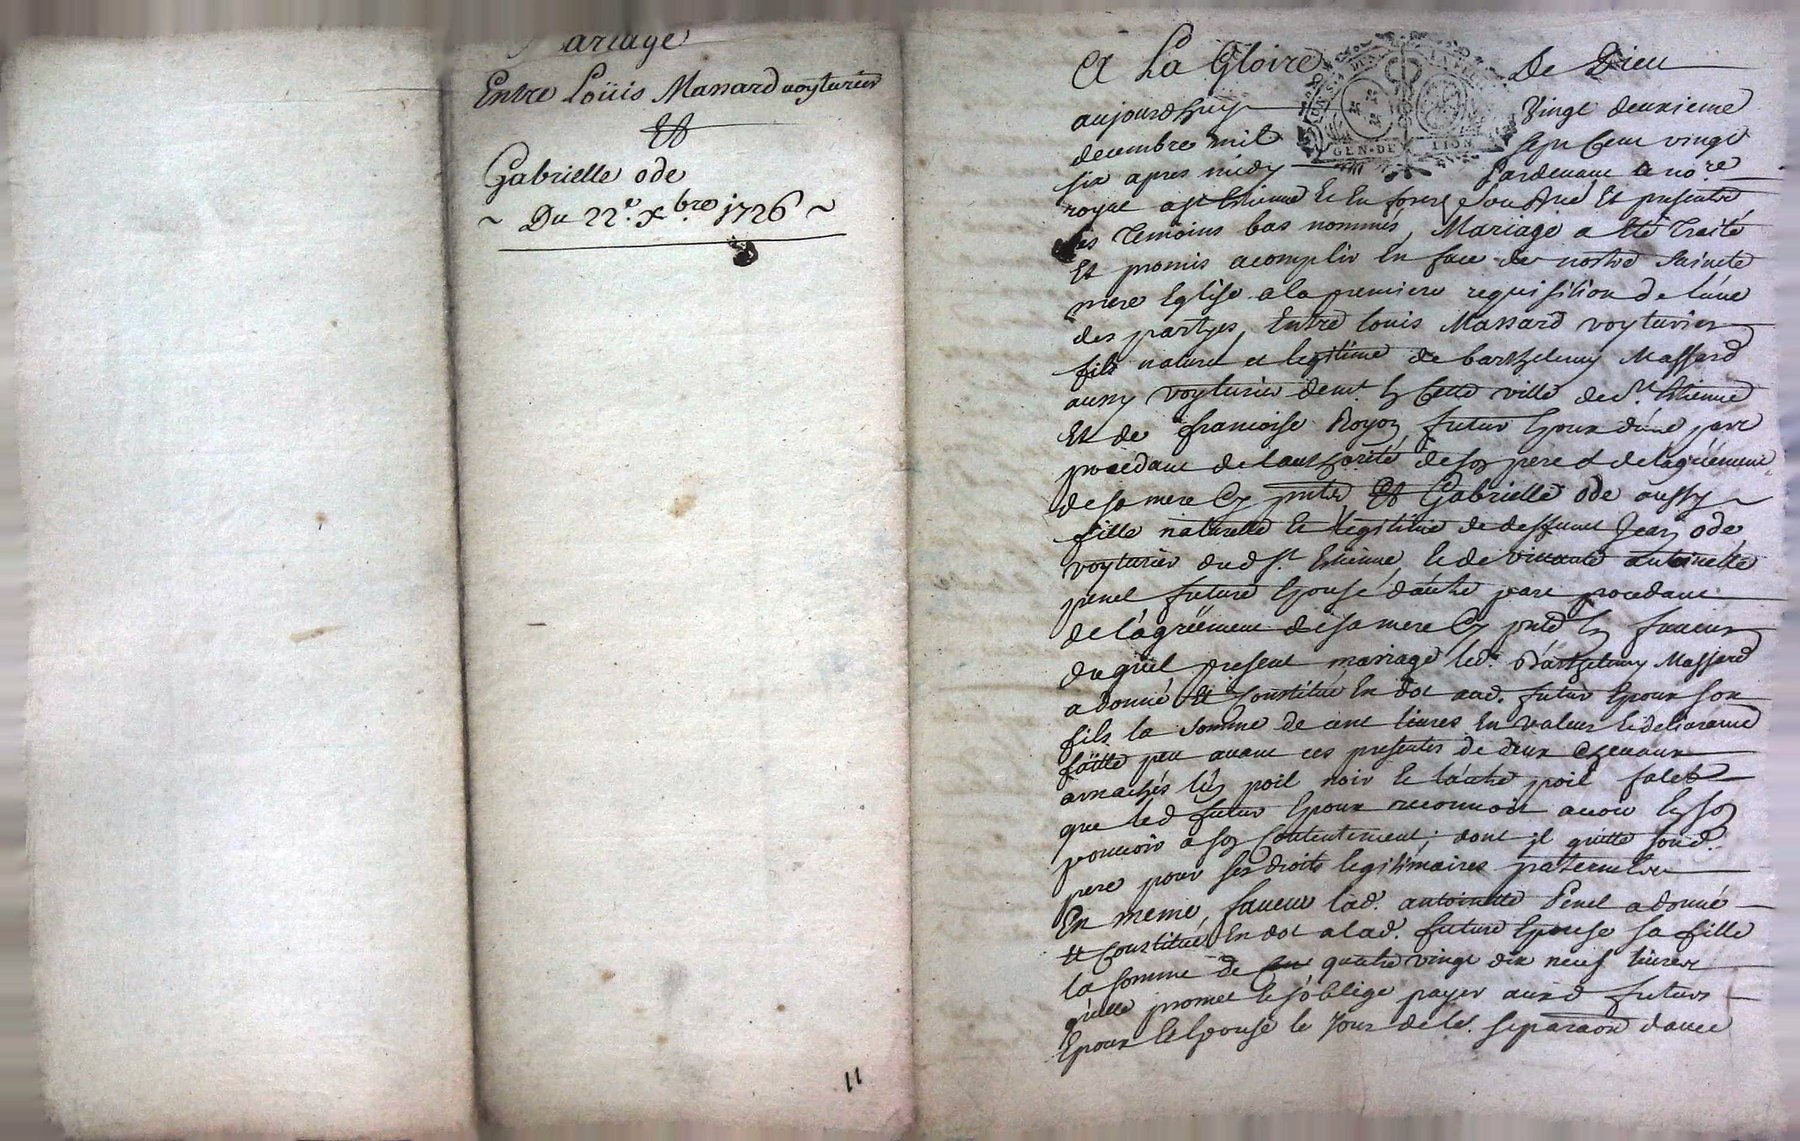 Mariage
Entre Loüis Massard voyturier
Et
Gabrielle ode
~ Du 22e. xbre 1726 ~
11
A La Gloire De Dieu
aujourdhuy Vingt deuxieme
decembre mil sept Cent vingt
six apres midy Pardevant le no.re
royal a st Etienne et en forest soussigné Et presents
les Temoins bas nommés, Mariage a été Traité
Et promis acomplir En face de nostre Sainete
mere Eglise a la premiere requisition de lune
des partyes, Entre Louis Massard voyturier
fils naturel et legitime de barthelemy Massard
aussy voyturier demt. En Cette ville de st. Etienne
Et de francoise Royon futur Epoux dune part
procedant de lauthorité de son pere et de lagréément
de sa mere Cy pnte Et Gabrielle ode aussy
fille naturelle et légitime de deffunct Jean ode
voyturier dud st. Etienne, et de vivante antoinette
penel future Epouse dautre part procedant
de lagréement de sa mere Cy pnte En faveur
duquel present mariage led. Barthelemy Massard
a donné et Constitué En dot aud. futur Epoux son
fils la somme de cent livres En valeur et delivrance
faitte peu avant ces presentes de deux chevaux
arnachés lun poil noir et lautre poil falet
que led futur Epoux reconnoit avoir En son
pouvoir a son Contentement; dont il quitte sond.
pere pour ses droits legitimaires paternels
En meme faveur lad. antoinette Penel a donné
et Constitué En dot a lad. future Epouse sa fille
la somme de quatre vingt dix neuf livres
quelle promet et soblige payer auxd futurs
Epoux et Epouse le Jour de le. separaon davec